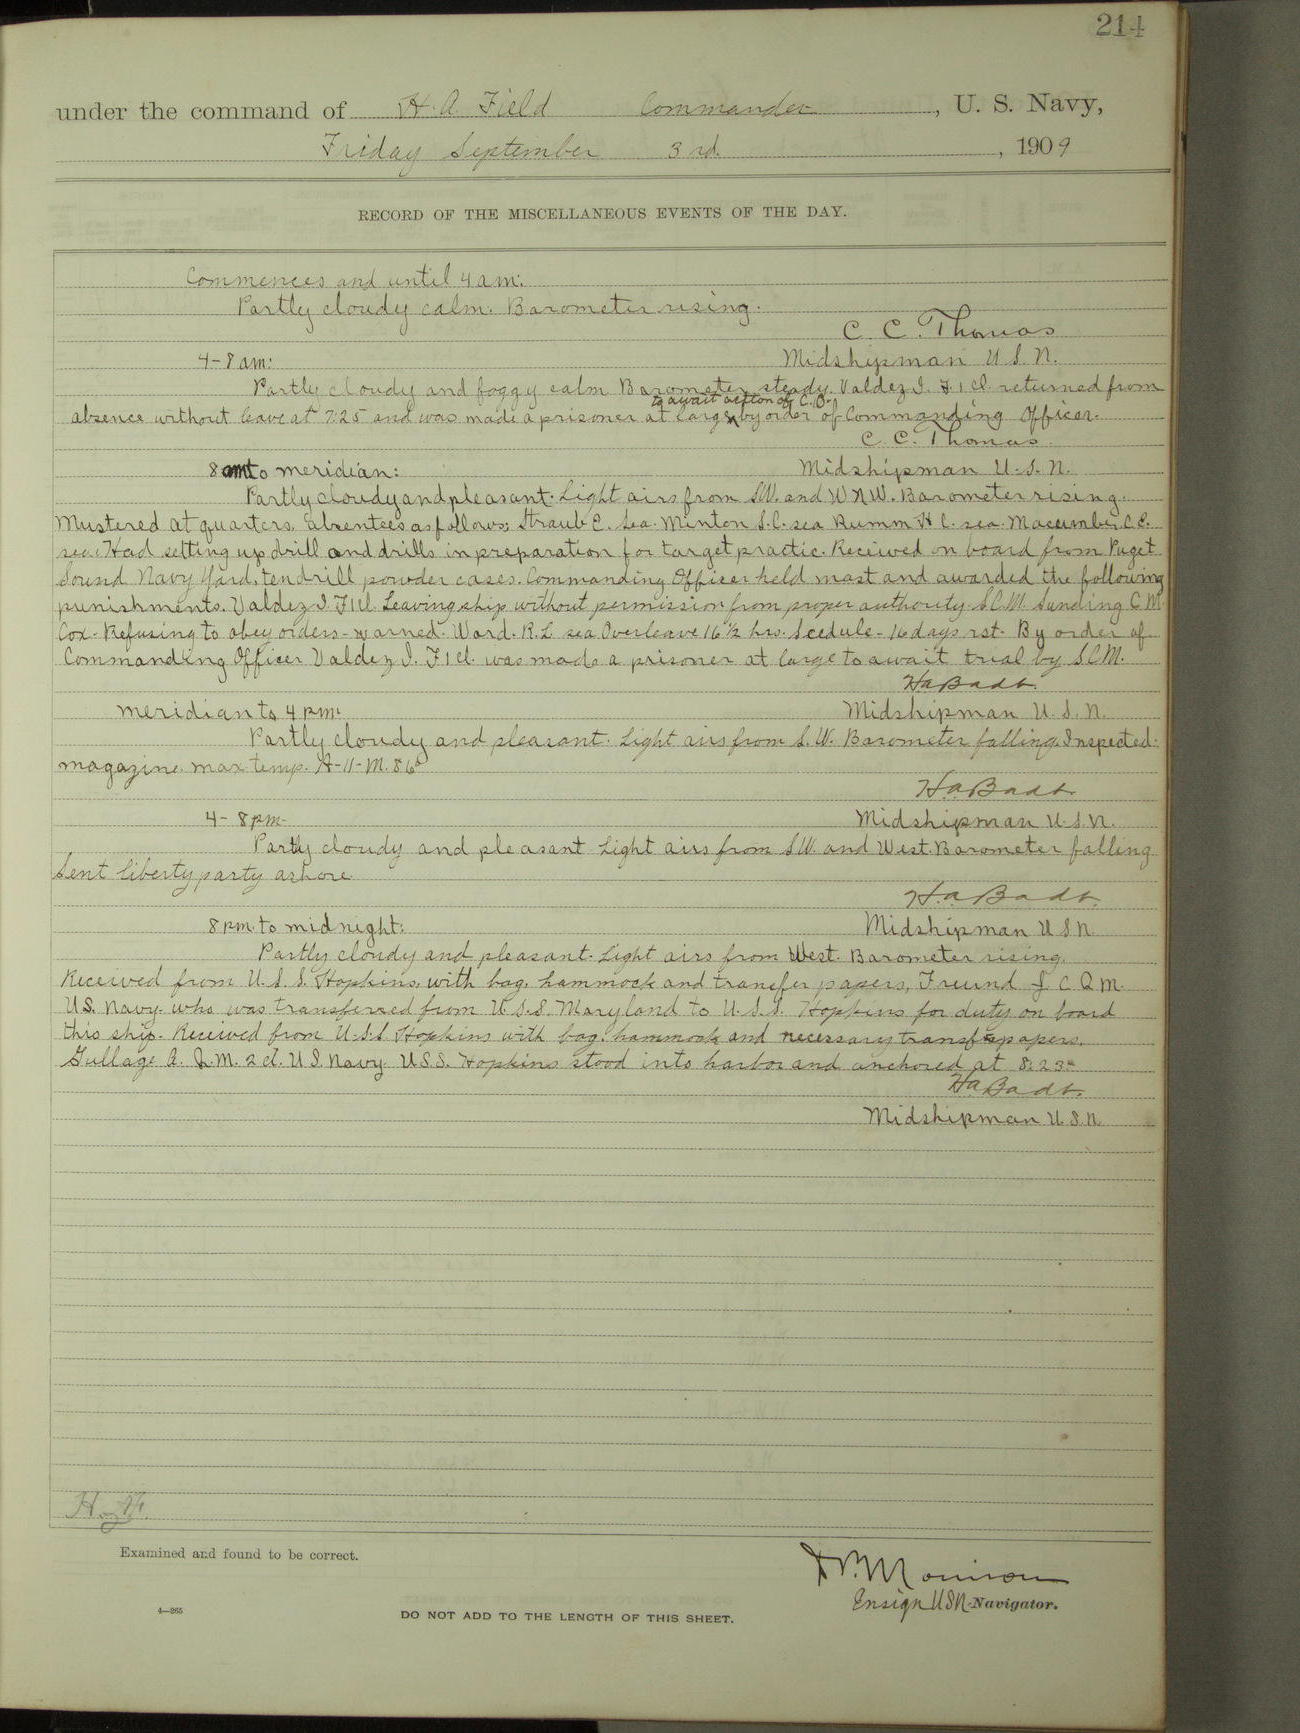 214
under the command of H. A. Field Commander, U. S. Navy,
Friday September 3rd, 1909
RECORD OF THE MISCELLANEOUS EVENTS OF THE DAY.
Commences and until 4 am:
Partly cloudy calm. Barometer rising.
C. C. Thomas
4-8 am: Midshipman U.S.N.
Partly cloudy and foggy calm Barometer steady. Valdez I. F 1 cl. returned from
to await action of C.O.
absence without leave at 7:25 and was made a prisoner at large by order of Commanding Officer.
C. C. Thomas
8 am to meridian: Midshipman U.S.N.
Partly cloudy and pleasant. Light airs from SW. and WNW. Barometer rising.
Mustered at quarters. Absentees as follows; Straub C. sea. Minton S.C. sea Rumm H C. sea. Macumber C.C.
sea. Had setting up drill and drills in preparation for target practic. Received on board from Puget
Sound Navy Yard, ten drill powder cases. Commanding Officer held mast and awarded the following
punishments. Valdez I. F1cl. Leaving ship without permission from proper authority S.C.M. Sunding C.M.
Cox. Refusing to obey orders - warned. Ward. R.L. sea Overleave 16 1/2 hrs. Scedule - 16 days rst. By order of
Commanding Officer Valdez I. F1cl. was made a prisoner at large to await trial by SCM.
H A Badt.
meridian to 4 pm: Midshipman U.S.N.
Partly cloudy and pleasant. Light airs from S.W. Barometer falling. Inspected
magazine max temp. A-11-M. 86°
H.A. Badt.
4-8 pm. Midshipman U.S.N.
Partly cloudy and pleasant Light airs from SW. and West. Barometer falling
Sent liberty party ashore
H.A. Badt.
8 pm. to midnight: Midshipman U S N.
Partly cloudy and pleasant. Light airs from West. Barometer rising.
Received from U.S.S. Hopkins, with bag, hammock and transfer papers, Freund J. C Q M.
U.S. Navy. who was transferred from U.S.S. Maryland to U.S.S. Hopkins for duty on board
this ship. Received from U.S.S. Hopkins with bag, hammock and necessary transfer papers.
Gullage A. Q.M. 2 cl. U.S. Navy. U.S.S. Hopkins stood into harbor and anchored at 8:23
H A Badt.
Midshipman U.S.N.
Examined and found to be correct.
Ensign USN Navigator.
4—265
DO NOT ADD TO THE LENGTH OF THIS SHEET.